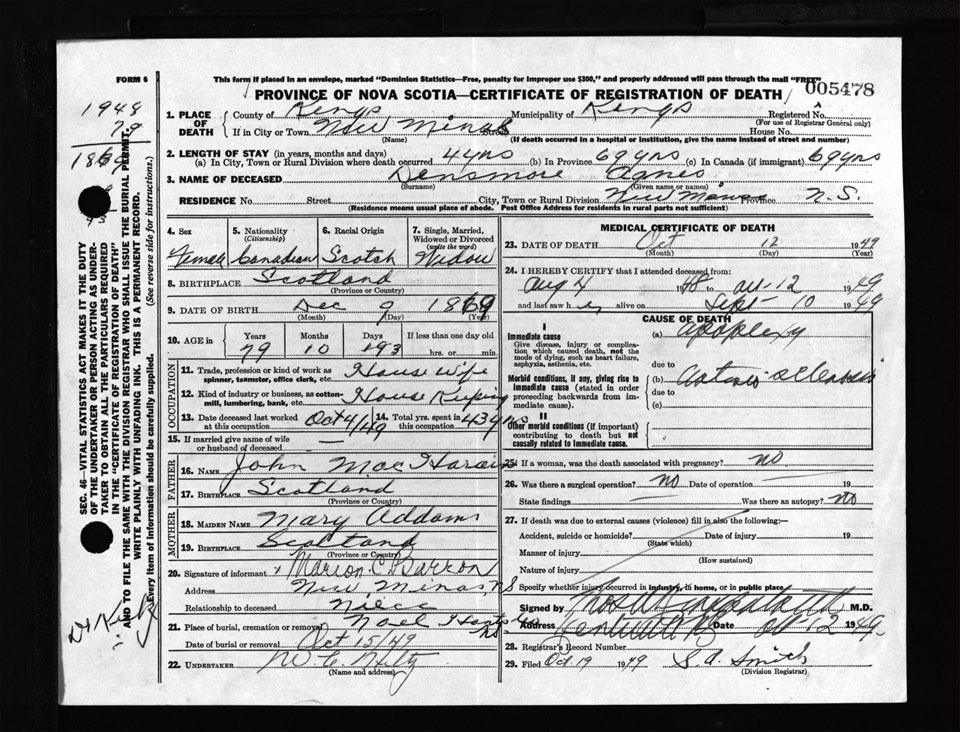 FORM 6
This form if placed in an envelope, marked "Dominion Statistics—Free, penalty for improper use $300," and properly addressed will pass through the mail "FREE"
PROVINCE OF NOVA SCOTIA—CERTIFICATE OF REGISTRATION OF DEATH
005478
1. PLACE OF DEATH
County of Kings Municipality of Kings Registered No.
(For use of Registrar General only)
If in City or Town New Minas Street House No.
(Name) (If death occurred in a hospital or institution, give the name instead of street and number)
2. LENGTH OF STAY (in years, months and days)
(a) In City, Town or Rural Division where death occurred 44 yrs (b) In Province 69 yrs (c) In Canada (if immigrant) 69 yrs
3. NAME OF DECEASED Densmore Agnes
(Surname) (Given name or names)
RESIDENCE No. Street City, Town or Rural Division New Minas Province N.S.
(Residence means usual place of abode. Post Office Address for residents in rural parts not sufficient)
4. Sex
Female
5. Nationality
(Citizenship)
Canadian
6. Racial Origin
Scotch
7. Single, Married, Widowed or Divorced
(write the word)
Widow
8. BIRTHPLACE Scotland
(Province or Country)
9. DATE OF BIRTH Dec 9 1869
(Month) (Day) (Year)
10. AGE in
Years Months Days If less than one day old
79 10 3 hrs. or min.
OCCUPATION
11. Trade, profession or kind of work as spinner, teamster, office clerk, etc. House wife
12. Kind of industry or business, as cotton-mill, lumbering, bank, etc. House Keeping
13. Date deceased last worked at this occupation Oct 4/49
14. Total yrs. spent in this occupation 43 yrs
15. If married give name of wife or husband of deceased —
FATHER
16. NAME John Mac
17. BIRTHPLACE Scotland
(Province or Country)
MOTHER
18. MAIDEN NAME Mary Addams
19. BIRTHPLACE Scotland
(Province or Country)
20. Signature of informant x Marion C. Barron
Address New Minas, NS
Relationship to deceased Niece
21. Place of burial, cremation or removal Noel Hants Co NS
Date of burial or removal Oct 15/49
22. UNDERTAKER W. C.
(Name and address)
MEDICAL CERTIFICATE OF DEATH
23. DATE OF DEATH Oct 12 1949
(Month) (Day) (Year)
24. I HEREBY CERTIFY that I attended deceased from:
Aug 4 1948 to Oct 12 1949
and last saw her alive on Sept 10 1949
CAUSE OF DEATH
I
Immediate cause
Give disease, injury or complication which caused death, not the mode of dying, such as heart failure, asphyxia, asthenia, etc.
(a) Apoplexy
due to
Morbid conditions, if any, giving rise to immediate cause (stated in order proceeding backwards from immediate cause).
(b)
due to
(c)
II
Other morbid conditions (if important) contributing to death but not causally related to immediate cause.
25. If a woman, was the death associated with pregnancy? no
26. Was there a surgical operation? no Date of operation — 19
State findings Was there an autopsy? no
27. If death was due to external causes (violence) fill in also the following:
Accident, suicide or homicide? Date of injury 19
(State which)
Manner of injury
(How sustained)
Nature of injury
Specify whether injury occurred in industry, in home, or in public place
Signed by M.D.
Address Kentville Date Oct 12 1949
28. Registrar's Record Number
29. Filed Oct 19 1949 S. A. Smith
(Division Registrar)
SEC. 46—VITAL STATISTICS ACT MAKES IT THE DUTY OF THE UNDERTAKER OR PERSON ACTING AS UNDERTAKER TO OBTAIN ALL THE PARTICULARS REQUIRED IN THE "CERTIFICATE OF REGISTRATION OF DEATH" AND TO FILE THE SAME WITH THE DIVISION REGISTRAR WHO SHALL ISSUE THE BURIAL PERMIT.
WRITE PLAINLY WITH UNFADING INK. THIS IS A PERMANENT RECORD.
Every item of information should be carefully supplied. (See reverse side for instructions.)
1948
79
1869